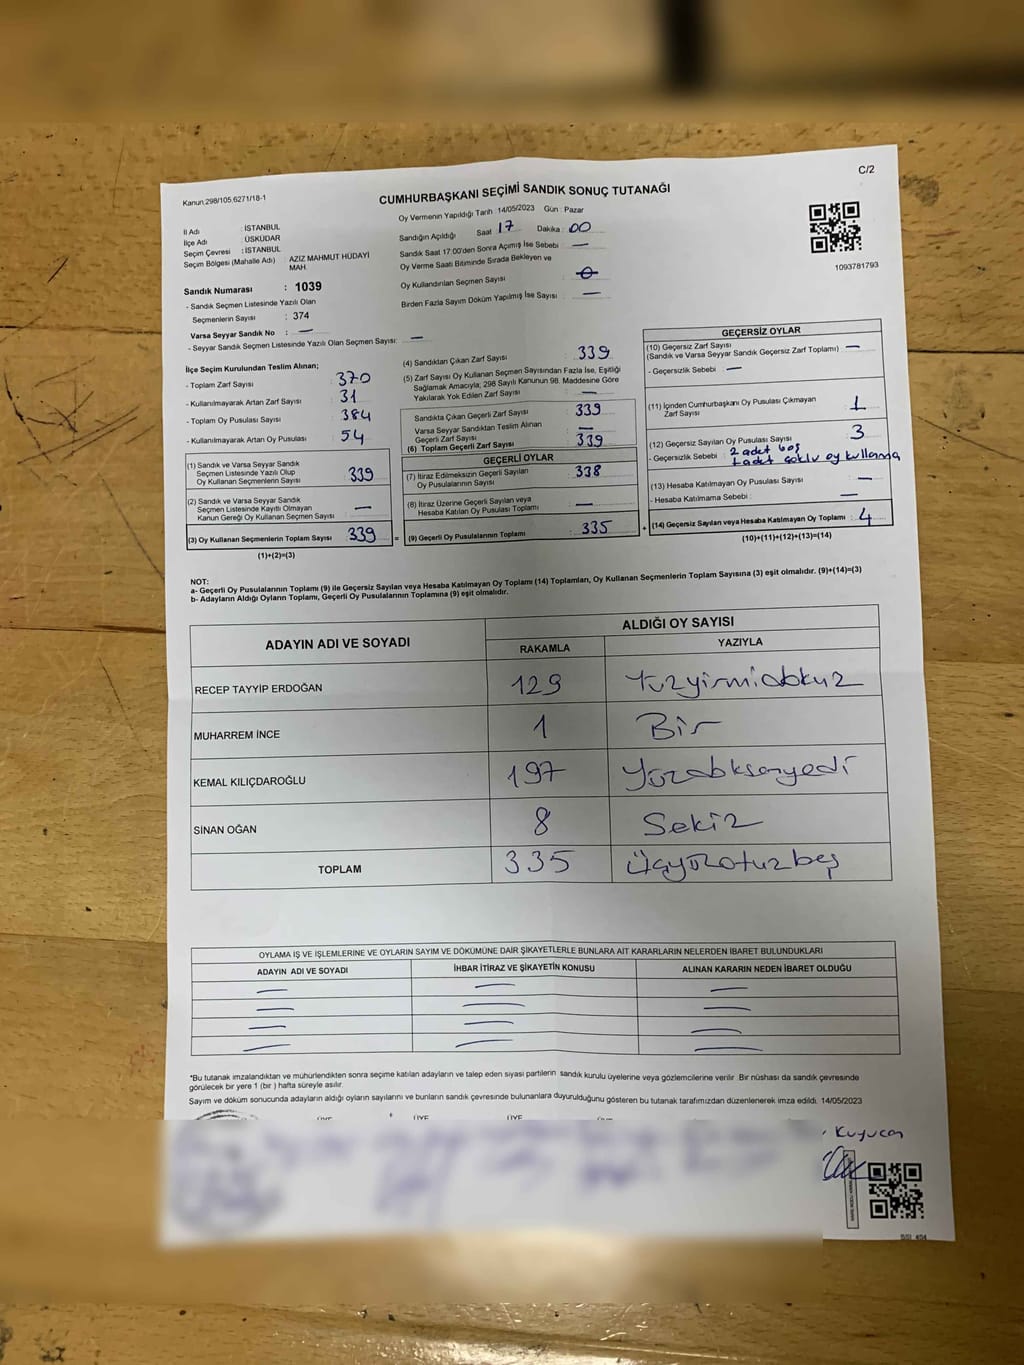 C/2
Kanun:298/105.6271/18-1
CUMHURBAŞKANI SEÇİMİ SANDIK SONUÇ TUTANAĞI
Oy Vermenin Yapıldığı Tarih :14/05/2023 Gün : Pazar
İl Adı : İSTANBUL
İlçe Adı : ÜSKÜDAR
Seçim Çevresi : İSTANBUL
Seçim Bölgesi (Mahalle Adı) : AZİZ MAHMUT HÜDAYİ
MAH
Sandığın Açıldığı Saat 17 Dakika : 00
Sandık Saat 17:00'den Sonra Açımış İse Sebebi : —
Oy Verme Saati Bitiminde Sırada Bekleyen ve
Oy Kullandırılan Seçmen Sayısı : 0
Birden Fazla Sayım Döküm Yapılmış İse Sayısı : —
1093781793
Sandık Numarası : 1039
- Sandık Seçmen Listesinde Yazılı Olan
Seçmenlerin Sayısı : 374
Varsa Seyyar Sandık No : —
- Seyyar Sandık Seçmen Listesinde Yazılı Olan Seçmen Sayısı: —
İlçe Seçim Kurulundan Teslim Alınan;
- Toplam Zarf Sayısı : 370
- Kullanılmayarak Artan Zarf Sayısı : 31
- Toplam Oy Pusulası Sayısı : 384
- Kullanılmayarak Artan Oy Pusulası : 54
(1) Sandık ve Varsa Seyyar Sandık
Seçmen Listesinde Yazılı Olup
Oy Kullanan Seçmenlerin Sayısı : 339
(2) Sandık ve Varsa Seyyar Sandık
Seçmen Listesinde Kayıtlı Olmayan
Kanun Gereği Oy Kullanan Seçmen Sayısı : —
(3) Oy Kullanan Seçmenlerin Toplam Sayısı : 339 =
(1)+(2)=(3)
(4) Sandıktan Çıkan Zarf Sayısı : 339
(5) Zarf Sayısı Oy Kullanan Seçmen Sayısından Fazla İse, Eşitliği
Sağlamak Amacıyla; 298 Sayılı Kanunun 98. Maddesine Göre
Yakılarak Yok Edilen Zarf Sayısı : —
Sandıkta Çıkan Geçerli Zarf Sayısı : 339
Varsa Seyyar Sandıktan Teslim Alınan
Geçerli Zarf Sayısı : —
(6) Toplam Geçerli Zarf Sayısı : 339
GEÇERLİ OYLAR
(7) İtiraz Edilmeksizin Geçerli Sayılan
Oy Pusulalarının Sayısı : 338
(8) İtiraz Üzerine Geçerli Sayılan veya
Hesaba Katılan Oy Pusulası Toplamı : —
(9) Geçerli Oy Pusulalarının Toplamı : 335 +
GEÇERSİZ OYLAR
(10) Geçersiz Zarf Sayısı : —
(Sandık ve Varsa Seyyar Sandık Geçersiz Zarf Toplamı)
- Geçersizlik Sebebi : —
(11) İçinden Cumhurbaşkanı Oy Pusulası Çıkmayan
Zarf Sayısı : 1
(12) Geçersiz Sayılan Oy Pusulası Sayısı : 3
- Geçersizlik Sebebi : 2 adet boş
1 adet çoklu oy kullanma
(13) Hesaba Katılmayan Oy Pusulası Sayısı : —
- Hesaba Katılmama Sebebi : —
(14) Geçersiz Sayılan veya Hesaba Katılmayan Oy Toplamı : 4
(10)+(11)+(12)+(13)=(14)
NOT:
a- Geçerli Oy Pusulalarının Toplamı (9) ile Geçersiz Sayılan veya Hesaba Katılmayan Oy Toplamı (14) Toplamları, Oy Kullanan Seçmenlerin Toplam Sayısına (3) eşit olmalıdır. (9)+(14)=(3)
b- Adayların Aldığı Oyların Toplamı, Geçerli Oy Pusulalarının Toplamına (9) eşit olmalıdır.
ADAYIN ADI VE SOYADI ALDIĞI OY SAYISI
RAKAMLA YAZIYLA
RECEP TAYYİP ERDOĞAN 129 Yüzyirmidokuz
MUHARREM İNCE 1 Bir
KEMAL KILIÇDAROĞLU 197 Yüzdoksanyedi
SİNAN OĞAN 8 Sekiz
TOPLAM 335 Üçyüzotuzbeş
OYLAMA İŞ VE İŞLEMLERİNE VE OYLARIN SAYIM VE DÖKÜMÜNE DAİR ŞİKAYETLERLE BUNLARA AİT KARARLARIN NELERDEN İBARET BULUNDUKLARI
ADAYIN ADI VE SOYADI İHBAR İTİRAZ VE ŞİKAYETİN KONUSU ALINAN KARARIN NEDEN İBARET OLDUĞU
— — —
— — —
— — —
— — —
*Bu tutanak imzalandıktan ve mühürlendikten sonra seçime katılan adayların ve talep eden siyasi partilerin sandık kurulu üyelerine veya gözlemcilerine verilir. Bir nüshası da sandık çevresinde
görülecek bir yere 1 (bir ) hafta süreyle asılır.
Sayım ve döküm sonucunda adayların aldığı oyların sayılarını ve bunların sandık çevresinde bulunanlara duyurulduğunu gösteren bu tutanak tarafımızdan düzenlenerek imza edildi. 14/05/2023
ÜYE ÜYE ÜYE
Kuyucan